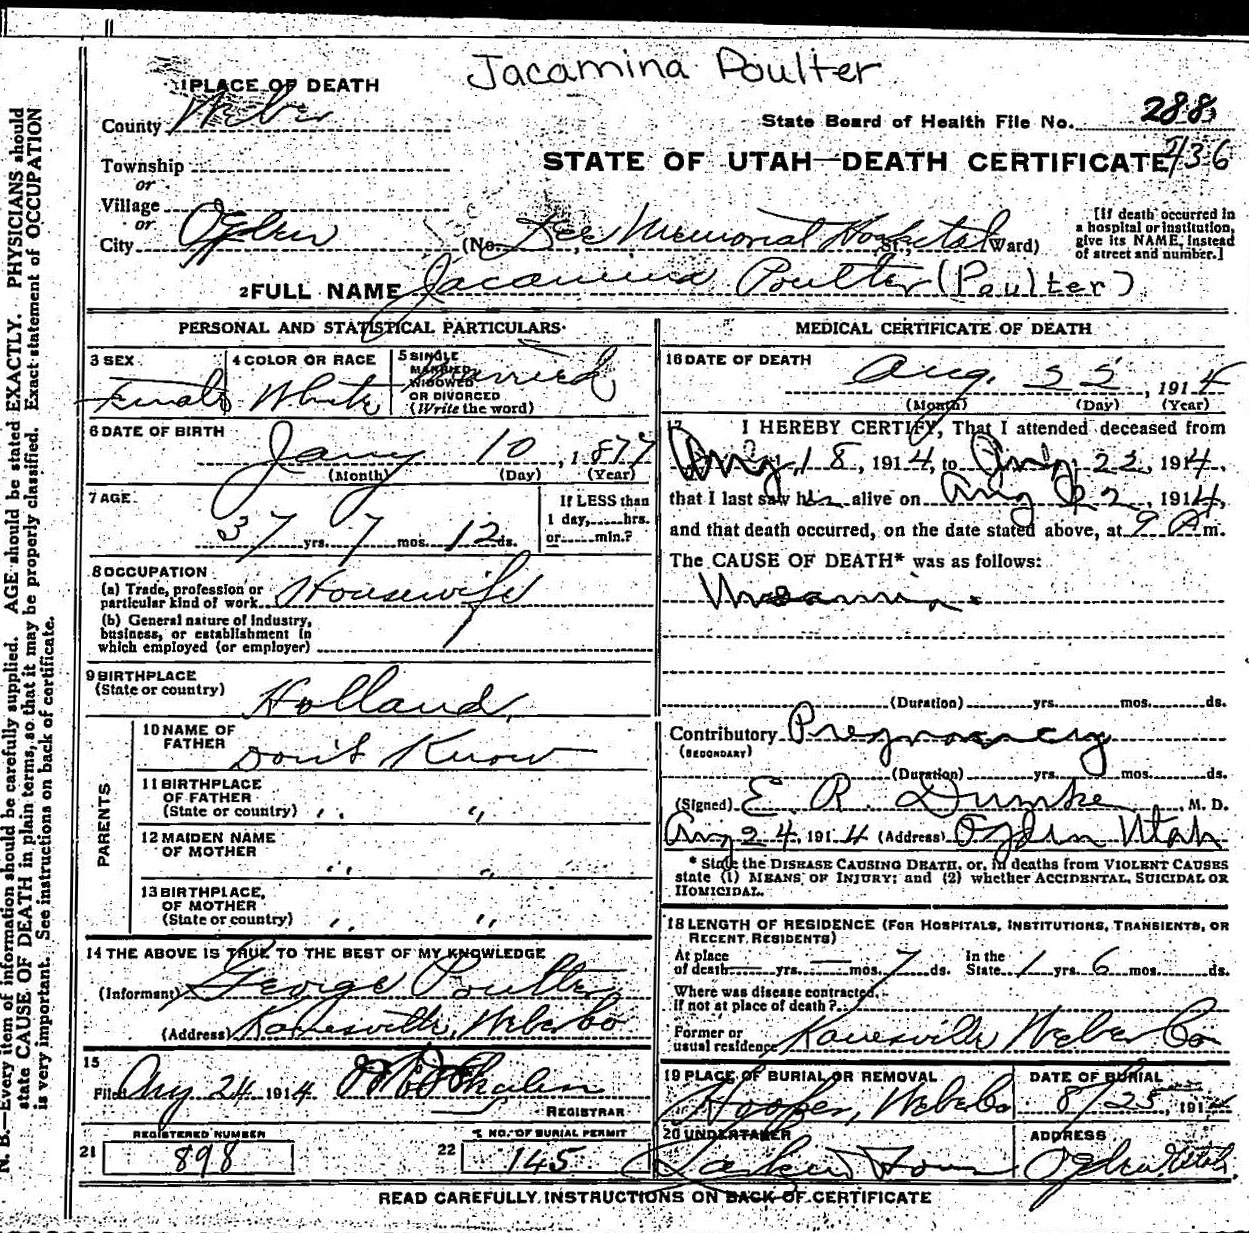 Jacamina Poulter
1 PLACE OF DEATH
County Weber
State Board of Health File No. 288
Township
STATE OF UTAH—DEATH CERTIFICATE 436
or
Village
or
City Ogden (No. Dee Memorial Hospital St., Ward)
[If death occurred in
a hospital or institution,
give its NAME, instead
of street and number.]
2 FULL NAME Jacamina Poulter (Poulter)
PERSONAL AND STATISTICAL PARTICULARS
3 SEX
Female
4 COLOR OR RACE
White
5 SINGLE
MARRIED
WIDOWED
OR DIVORCED
(Write the word)
Married
6 DATE OF BIRTH
Jany 10, 1877
(Month) (Day) (Year)
7 AGE
37 yrs. 7 mos. 12 ds.
If LESS than
1 day, hrs.
or min.?
8 OCCUPATION
(a) Trade, profession or
particular kind of work Housewife
(b) General nature of Industry,
business, or establishment in
which employed (or employer)
9 BIRTHPLACE
(State or country) Holland
PARENTS
10 NAME OF
FATHER Don't Know
11 BIRTHPLACE
OF FATHER
(State or country) " "
12 MAIDEN NAME
OF MOTHER " "
13 BIRTHPLACE,
OF MOTHER
(State or country) " "
14 THE ABOVE IS TRUE TO THE BEST OF MY KNOWLEDGE
(Informant) George Poulter
(Address) Kanesville, Weber Co
15
Filed Aug 24 1914
REGISTRAR
21 REGISTERED NUMBER
898
22 NO. OF BURIAL PERMIT
145
MEDICAL CERTIFICATE OF DEATH
16 DATE OF DEATH
Aug. 22, 1914
(Month) (Day) (Year)
17 I HEREBY CERTIFY, That I attended deceased from
Aug, 18, 1914, to Aug 22, 1914,
that I last saw her alive on Aug 22, 1914,
and that death occurred, on the date stated above, at 9 a m.
The CAUSE OF DEATH* was as follows:
(Duration) yrs. mos. ds.
Contributory Pregnancy
(SECONDARY)
(Duration) yrs. mos. ds.
(Signed) E. R. Dumke M. D.
Aug 24, 1914 (Address) Ogden Utah
* State the DISEASE CAUSING DEATH, or, in deaths from VIOLENT CAUSES
state (1) MEANS OF INJURY; and (2) whether ACCIDENTAL, SUICIDAL OR
HOMICIDAL.
18 LENGTH OF RESIDENCE (FOR HOSPITALS, INSTITUTIONS, TRANSIENTS, OR
RECENT RESIDENTS)
At place
of death — yrs. — mos. 7 ds.
In the
State 1 yrs 6 mos. ds.
Where was disease contracted,
if not at place of death?
Former or
usual residence Kanesville Weber Co
19 PLACE OF BURIAL OR REMOVAL
Hooper, Weber Co
DATE OF BURIAL
8/25, 1914
20 UNDERTAKER
ADDRESS
Ogden Utah.
READ CAREFULLY INSTRUCTIONS ON BACK OF CERTIFICATE
N. B.—Every item of information should be carefully supplied. AGE should be stated EXACTLY. PHYSICIANS should
state CAUSE OF DEATH in plain terms, so that it may be properly classified. Exact statement of OCCUPATION
is very important. See instructions on back of certificate.